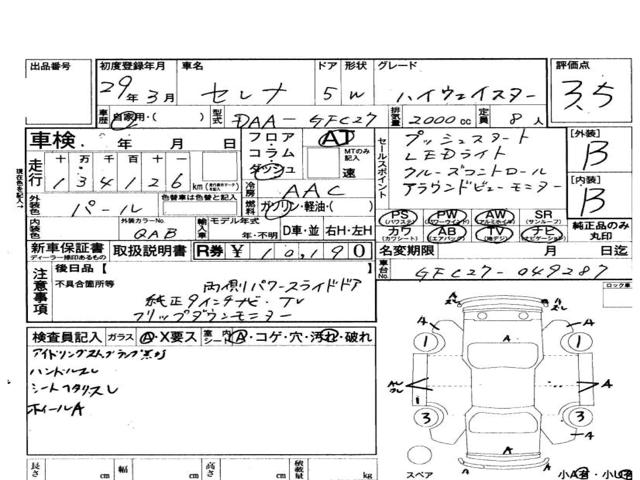 出品番号
初度登録年月 車名 ドア 形状 グレード 評価点
29年3月 セレナ 5 W ハイウェイスター 3.5
車歴 自家用・( ) 型式 DAA-GFC27 排気量 2000cc 定員 8人
車検 年 月 日
フロア・コラム・ダッシュ AT MTのみ記入 速
セールスポイント
プッシュスタート
LEDライト
クルーズコントロール
アラウンドビューモニター
[外装] B
[内装] B
現在色を記入→
走行 十 万 千 百 十 一
134126 km
冷房 AAC
外装色 パール 色替車は色替と記入
燃料 ガソリン・軽油・( )
内装色 外装カラーNo. QAB 輸入車 モデル年式 年・不明 D車・並 右H・左H
PS (パワステ) PW (パワーウインド) AW (アルミホイル) SR (サンルーフ)
カワ (カワシート) AB (エアバック) TV (地デジ) ナビ (ナビゲーション)
純正品のみ丸印
新車保証書 ディーラー捺印あるもの 取扱説明書 R券 ¥10,190
名変期限 月 日迄
車台No. GFC27-049287
注意事項
後日品【 】
不具合箇所等
両側パワースライドドア
純正9インチナビ・TV
フリップダウンモニター
ロック車
検査員記入 ガラス A・X要ス 室内 シート A・コゲ・穴・汚れ・破れ
ハンドルスレ
ホイールA
A A
1 1
A A
3 3
A A
スペア
小A 小U
長さ cm 幅 cm 高さ cm 積載量 kg